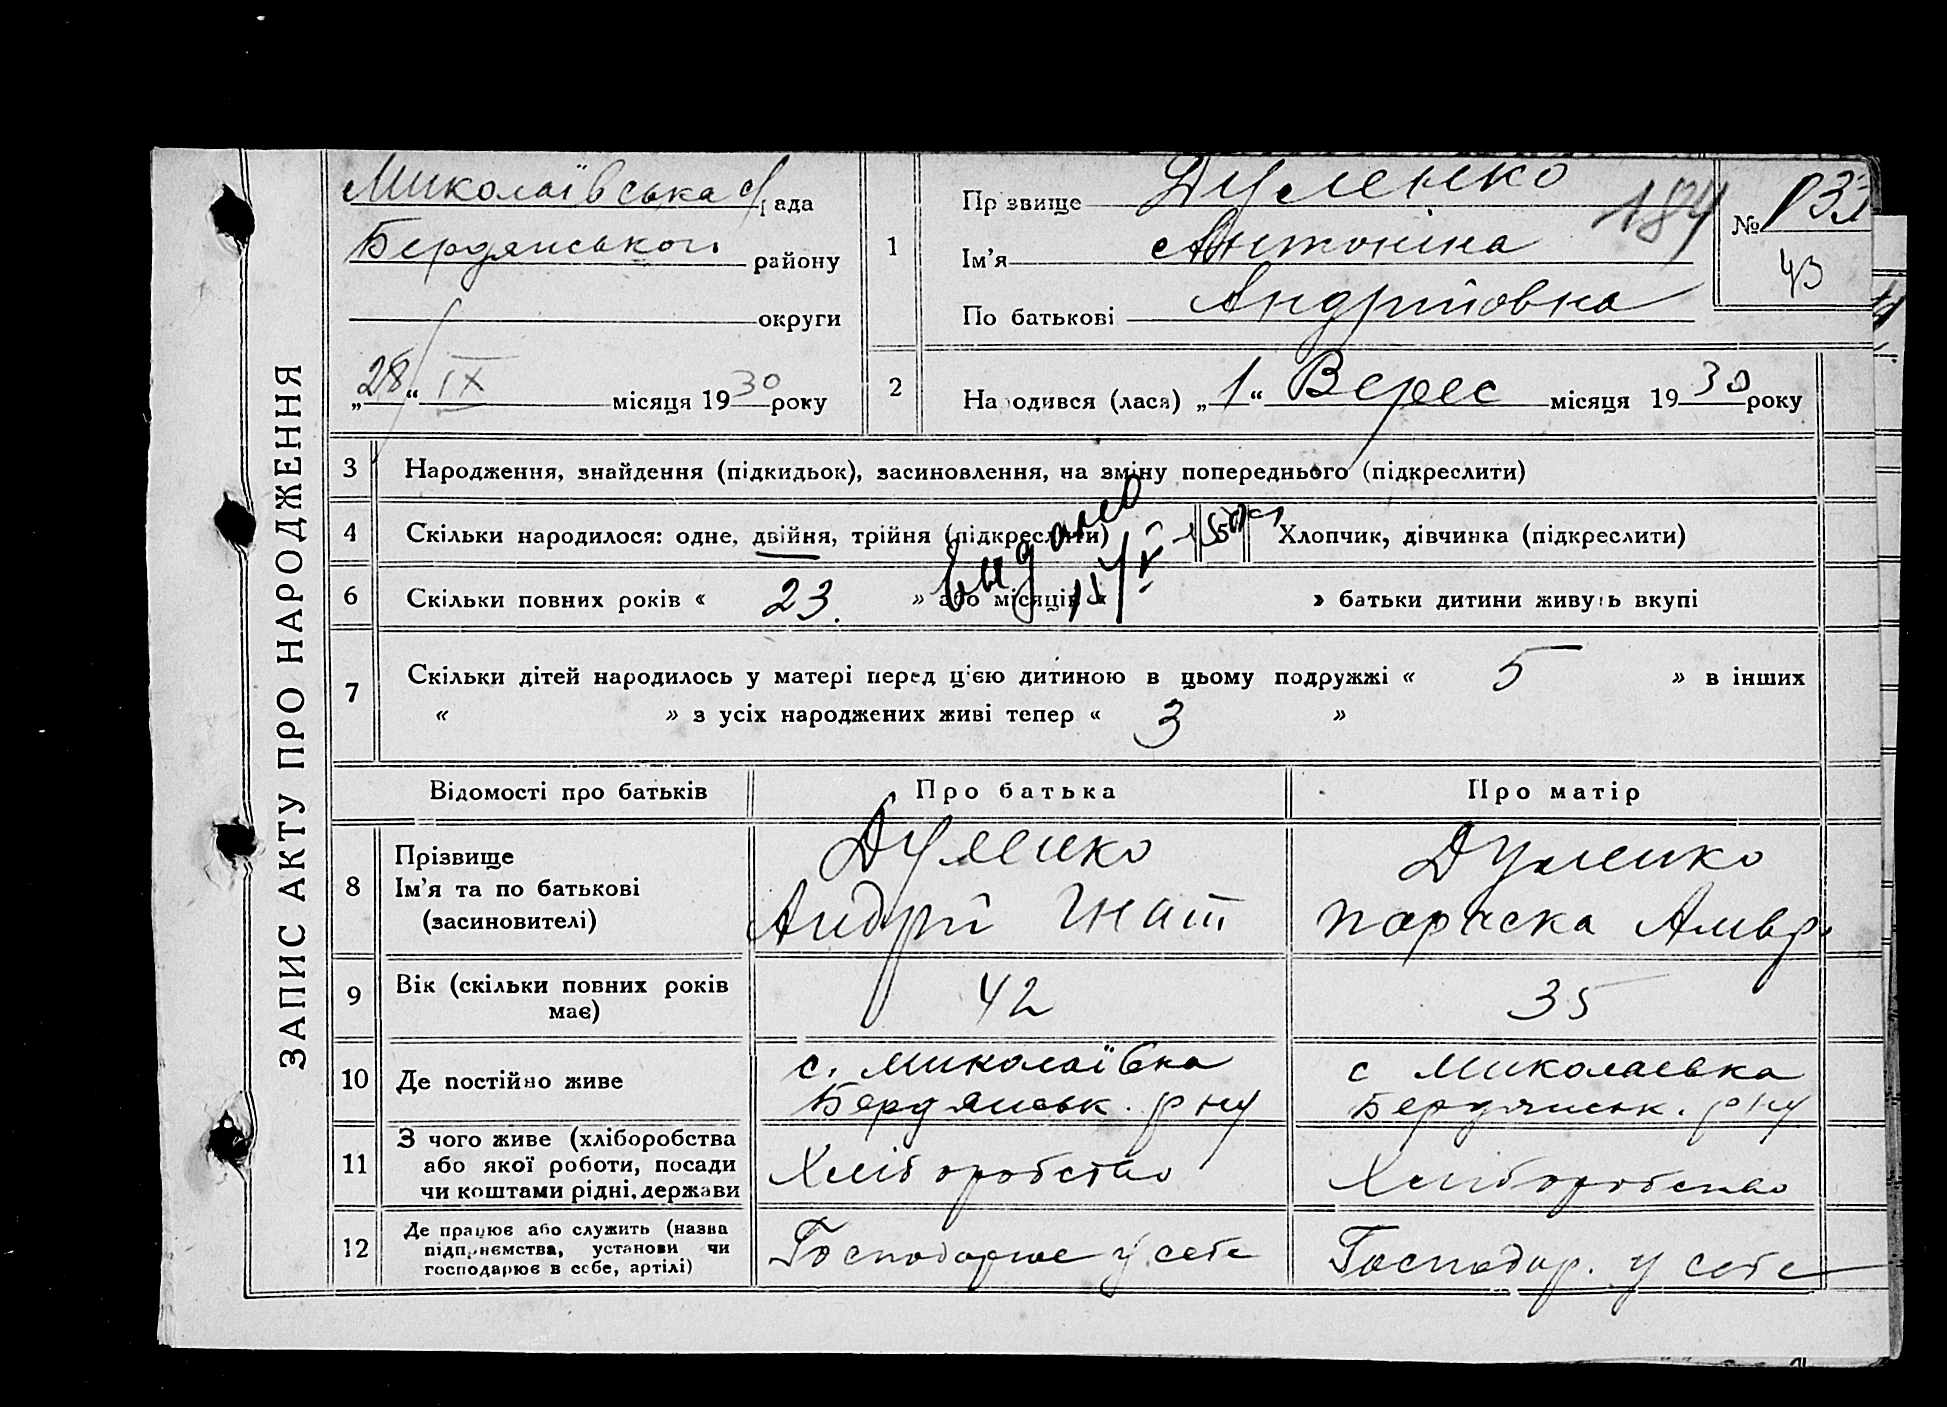 ЗАПИС АКТУ ПРО НАРОДЖЕННЯ
Миколаївська с/рада
Бердянського району
округи
„28“ IX місяця 1930 року
1
Прізвище Дуленко
Ім’я Антоніна
По батькові Андріївна
184
№
43
2
Народився (лася) „1“ Верес місяця 1930 року
3 Народження, знайдення (підкидьок), засиновлення, на зміну попереднього (підкреслити)
4 Скільки народилося: одне, двійня, трійня (підкреслити) 5 Хлопчик, дівчинка (підкреслити)
6 Скільки повних років « 23. » або місяців « » батьки дитини живуть вкупі
7 Скільки дітей народилось у матері перед ц'єю дитиною в цьому подружжі « 5 » в інших
« » з усіх народжених живі тепер « 3 »
Відомості про батьків Про батька Про матір
8 Прізвище
Ім’я та по батькові
(засиновителі)
Дуленко
Андрій Гнат
Дуленко
Параска Амвр.
9 Вік (скільки повних років має) 42 35
10 Де постійно живе
с. Миколаївка
Бердянськ. р ну
с Миколаевка
Бердянськ. р ну
11 З чого живе (хліборобства
або якої роботи, посади
чи коштами рідні, держави
Хліборобство
Хліборобство
12 Де працює або служить (назва
підприємства, установи чи
господарює в себе, артілі)
Господарює у себе
Господар. у себе